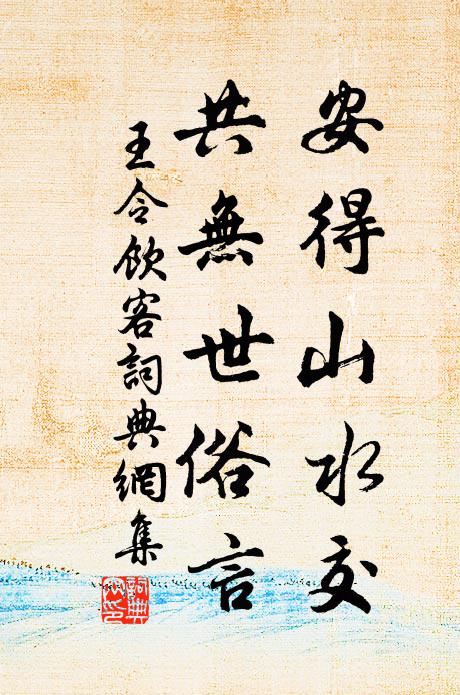 安得山水交
共無世俗言
王令飲客詞典網集
詞典